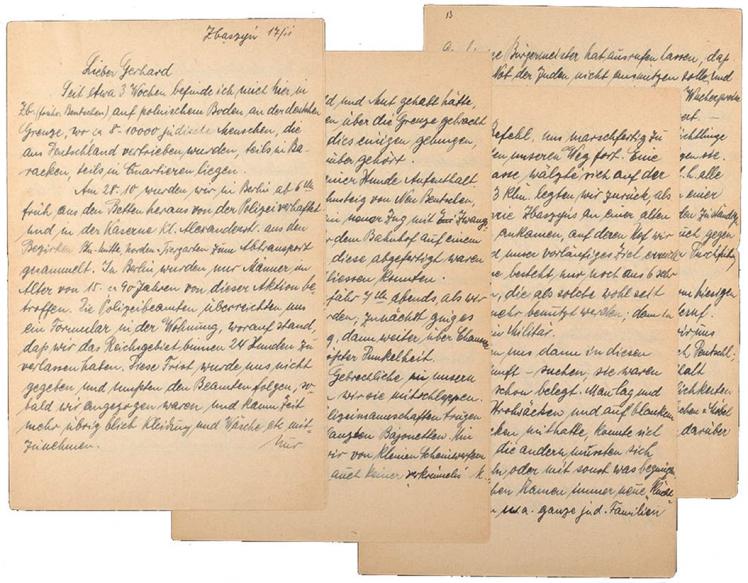 Zbaszyń 17/11
Lieber Gerhard
Seit etwa 3 Wochen befinde ich mich hier in
Zb. (früher Bentschen) auf polnischem Boden, an der deutschen
Grenze, wo ca 8-10000 jüdische Menschen, die
aus Deutschland vertrieben wurden, teils in Ba-
racken, teils in Quartieren liegen.
Am 28.10 wurden wir in Berlin ab 6 Uhr
früh aus den Betten heraus von der Polizei verhaftet
und in der Kaserne Kl. Alexanderstr. aus den
Bezirken Bln-Mitte, Norden, Tiergarten zum Abtransport
gesammelt. In Berlin wurden nur Männer im
Alter von 15 - 90 Jahren von dieser Aktion be-
troffen. Die Polizeibeamten überreichten uns
ein Formular in der Wohnung, worauf stand,
daß wir das Reichsgebiet binnen 24 Stunden zu
verlassen haben. Diese Frist wurde uns nicht
gegeben und mußten den Beamten folgen, so-
bald wir angezogen waren und kaum Zeit
mehr übrig blieb Kleidung und Wäsche etc mit-
zunehmen.
Nur
ld und Mut gehabt hätte,
en über die Grenze gebracht
dies einigen gelungen,
rüber gehört.
einer Stunde Aufenthalt
hnsteig von Neu Bentschen,
in neuer Zug mit
dem Bahnhof auf einem
diese abgefertigt waren
liessen konnten.
fähr 7 Uhr abends als wir
rden, zunächst ging es
g, dann weiter über Chaussee
pfster Dunkelheit.
Gebrechliche in unsern
n wir sie mitschleppen.
lizeimannschaften trugen
lanzten Bajonetten.
wir von kleinen Scheinwerfern
auch keiner "verkrümeln" k.
13
Bürgermeister hat ausrufen lassen, daß
Not der Juden nicht ausnutzen solle, und
Wucherpreise
Befehl, uns marschfertig zu
en unseren Weg fort. Eine
asse wälzte sich auf der
3 Klm. legten wir zurück, als
rie Zbaszyńs an einer alten
ankamen, auf deren Hof wir
d unser vorläufiges Ziel erreicht
ne besteht nur noch aus 6 sehr
n, die als solche wohl seit
mehr benutzt werden; denn in
in Militär.
n uns dann in diesen
nft - suchen. sie waren
schon belegt. Man lag und
Strohsäcken und auf blanken
ken mithatte, konnte sich
die andern mußten sich
ln oder mit sonst was begnügen
ben kamen immer neue "Kinder"
n u.a. ganze jüd. Familien
chtlinge
gen sie.
h. alle
einer
den Zuständen
uch gegen
hiesigen
ir uns
Deutschl.
alt
lichkeiten
darüber